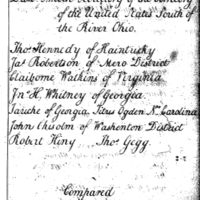 of the United States South of
the River Ohio.
Thoˢ Hennedy of Haintucky
Jaˢ Robertson of Mero District
Claiborne Watkins of Virginia
Jnº H. Whitney of Georgia.
of Georgia. Titus Ogden Nº Carolina
John Chisolm of Washenton District
Robert Hiny Thoˢ Gegg.
Compared